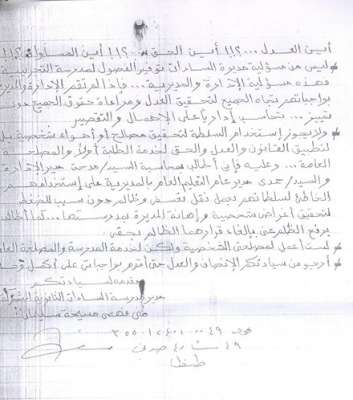 أين العدل ...؟!! أين الحق ...؟!! أين المساواة ؟!!
ليس من مسؤلية مديرة السادات توفير الفصول لمدرسة التجريبية
فهذه مسؤلية الإدارة والمديرية ... فإذا لم تقم الإدارة والمديرية
بواجباتهم تجاه الجميع لتحقيق العدل ومراعاة حقوق الجميع دون
تمييز ... تحاسب إداريا على الإهمال والتقصير
ولا يجوز إستخدام السلطة لتحقيق مصالح أو أهواء شخصية بل
لتطبيق القانون والعدل والحق لخدمة الطلبة أولاً والمصلحة
العامة ... وعليه فإني أطالب بمحاسبة السيد/ مدير الإدارة
والسيد/ مدير عام التعليم العام بالمديرية على إستخدامهم
الخاطئ لسلطاتهم بعمل نقل تعسفي وظالم دون سبب للضغط
لتحقيق أغراض شخصية وإهانة لمديرة بمدرستها ... كما أطالب
برفع الظلم عني بإلغاء قرارهما الظالم بحقي
لست أعمل لمصلحتي الشخصية ولكن لخدمة المدرسة والمصلحة العامة
أرجو من سيادتكم الإنصاف والعدل حتى أقوم بواجباتي على أكمل وجه
مقدمه لسيادتكم
مدير مدرسة السادات الثانوية
فهمي مسيحة
٤٩ ش
طنطا